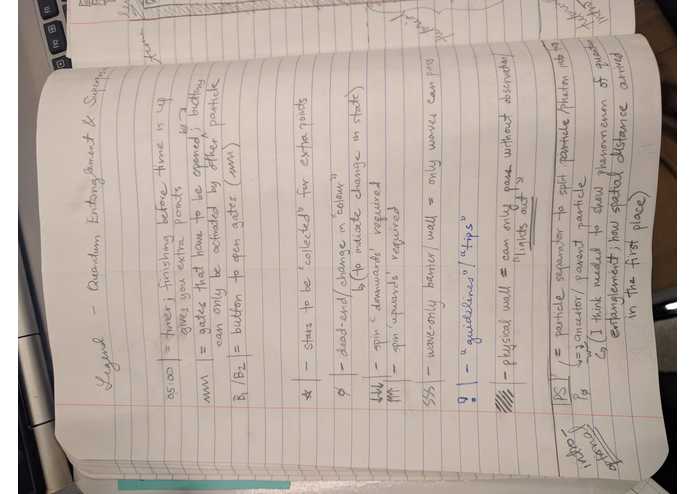 Legend - Quantum Entanglement &
05:00 = timer; finishing before time is up
gives you extra points
= gates that have to be opened; button
can only be activated by other particle
B1 / B2 = button to open gates
☆ - stars to be 'collected' for extra points
ø - dead-end / change in "colour"
↳ (to indicate change in state)
↓↓↓ - spin 'downwards' required
↑↑↑ - spin 'upwards' required
§§§ - wave-only barrier / wall = only waves can pass
! - "guidelines" / "tips"
- physical wall = can only pass without observation
"lights out"
"PS" / = particle separator to split particle / photon into
Pø = ancestor / parent particle
↳ (I think needed to show phenomenon of
entanglement; how spatial distance arrived
in the first place)